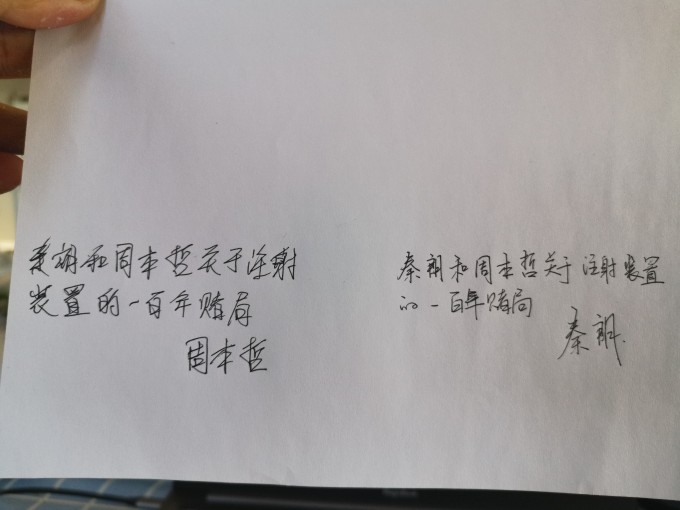 秦朗和周本哲关于注射
装置的一百年赌局
周本哲
秦朗和周本哲关于注射装置
的一百年赌局
秦朗